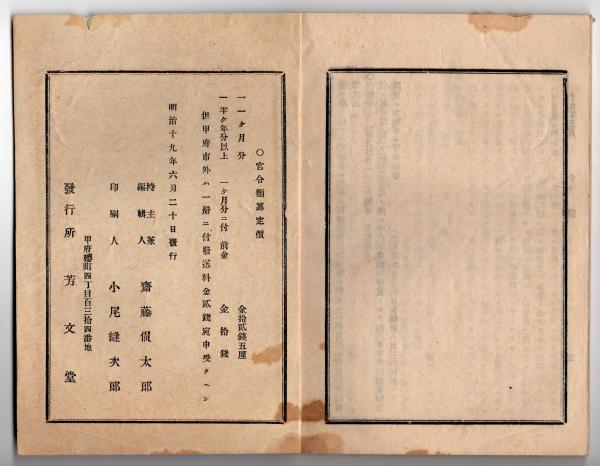 〇官令類纂定價
一 一ヶ月分 金拾貳錢五厘
一 半ヶ年分以上 一ヶ月分ニ付 前金 金拾錢
但甲府市外ハ一冊ニ付發送料金貳錢宛申受クヘシ
明治十九年六月二十日發行
持主兼
編輯人 齋藤侃太郎
印刷人 小尾縫次郎
甲府櫻町四丁目百三拾四番地
發行所 芳文堂